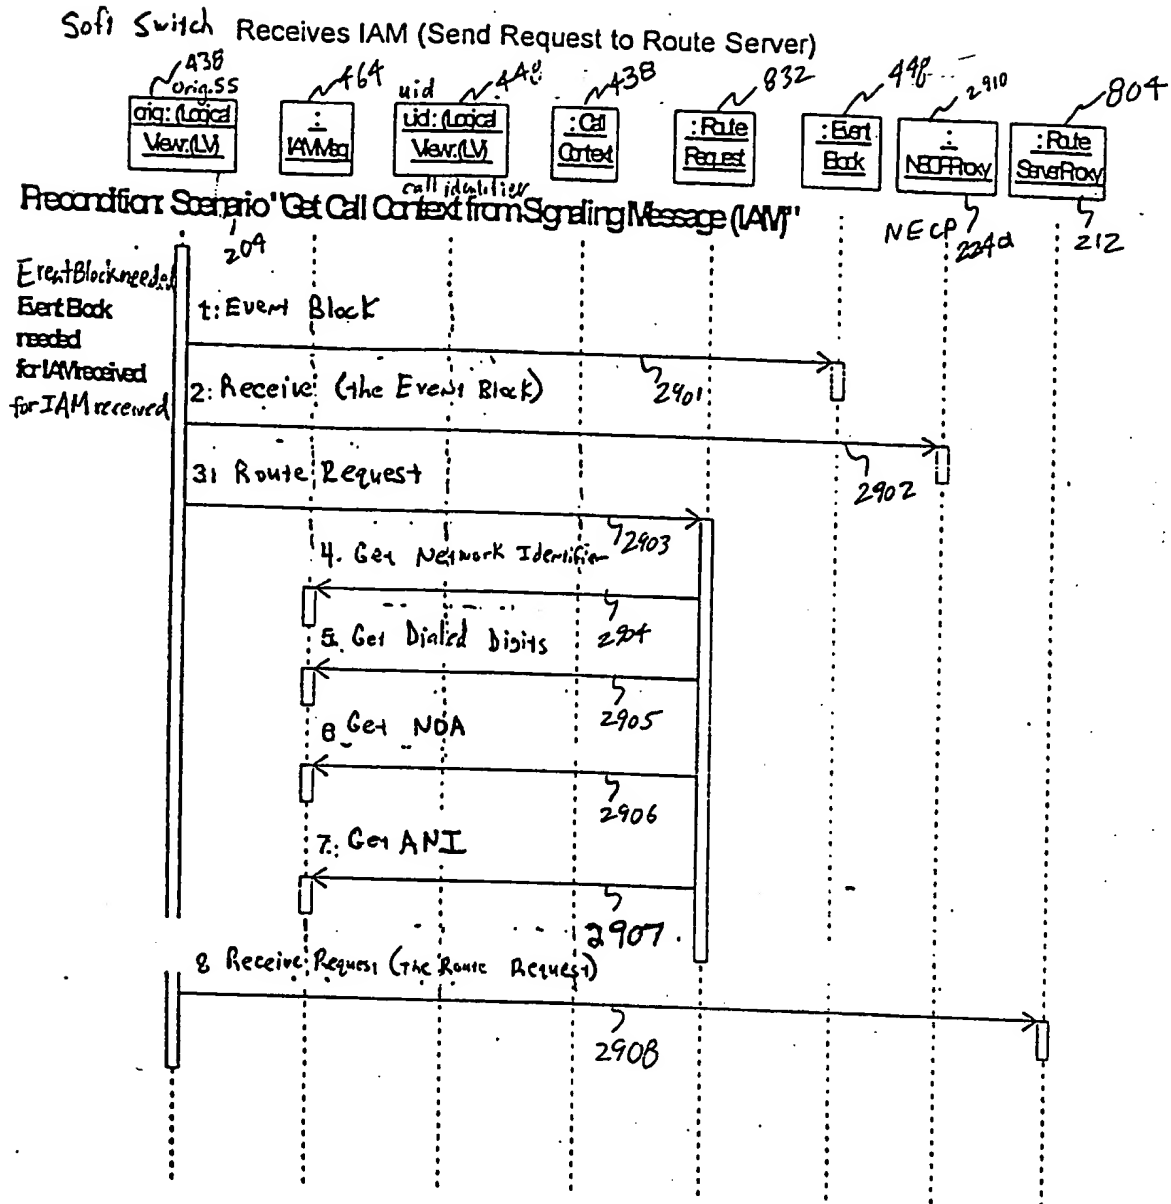 Soft Switch Receives IAM (Send Request to Route Server)
438
orig.SS
orig: (Logical
View:(LV)
464
:
IAMMsg
uid
448
uid: (Logical
View:(LV)
call identifier
438
: Call
Context
832
: Route
Request
448
: Event
Block
2910
:
NECPProxy
804
: Route
ServerProxy
Precondition: Scenario "Get Call Context from Signaling Message (IAM)"
204
NECP
224a
212
EventBlock needed
Event Block
needed
for IAM received
for IAM received
1: Event Block
2901
2: Receive (the Event Block)
2902
3: Route Request
2903
4. Get Network Identifier
2904
5. Get Dialed Digits
2905
6 Get NOA
2906
7: Get ANI
2907
8 Receive Request (the Route Request)
2908